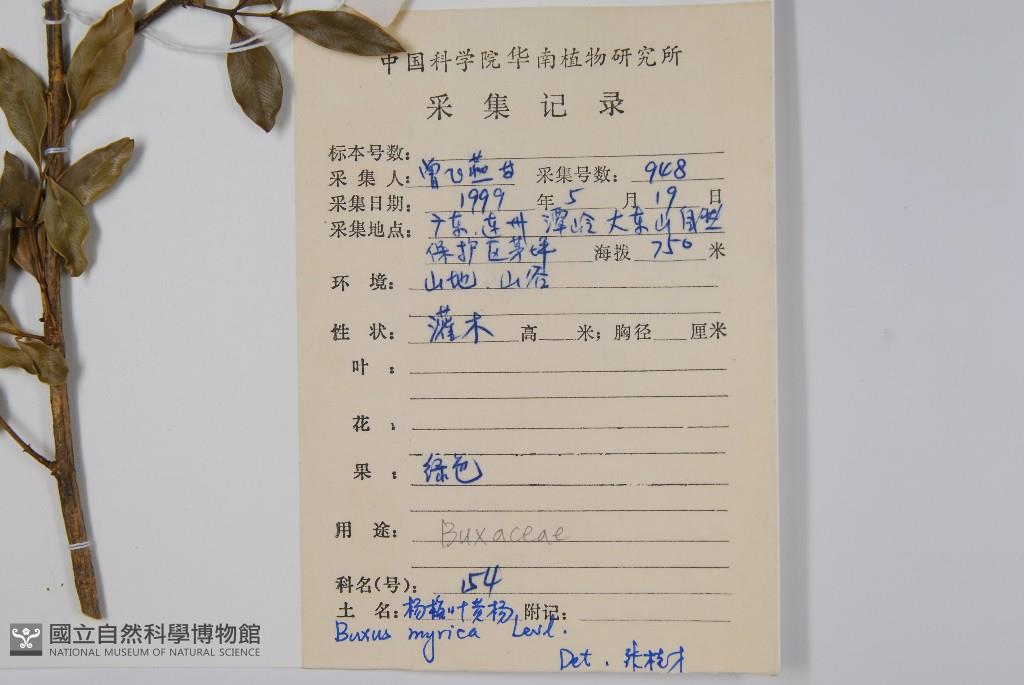 中国科学院华南植物研究所
采集记录
标本号数:
采集人: 曾飞燕 采集号数: 948
采集日期: 1999 年 5 月 19 日
采集地点: 广东.连州 潭岭 大东山自然
保护区茅坪 海拨 750 米
环境: 山地.山谷
性状: 灌木 高 米; 胸径 厘米
叶:
花:
果: 绿色
用途: Buxaceae
科名(号): 154
土名: 杨梅叶黄杨 附记:
Buxus myrica Levl.
Det. 张桂才
國立自然科學博物館
NATIONAL MUSEUM OF NATURAL SCIENCE